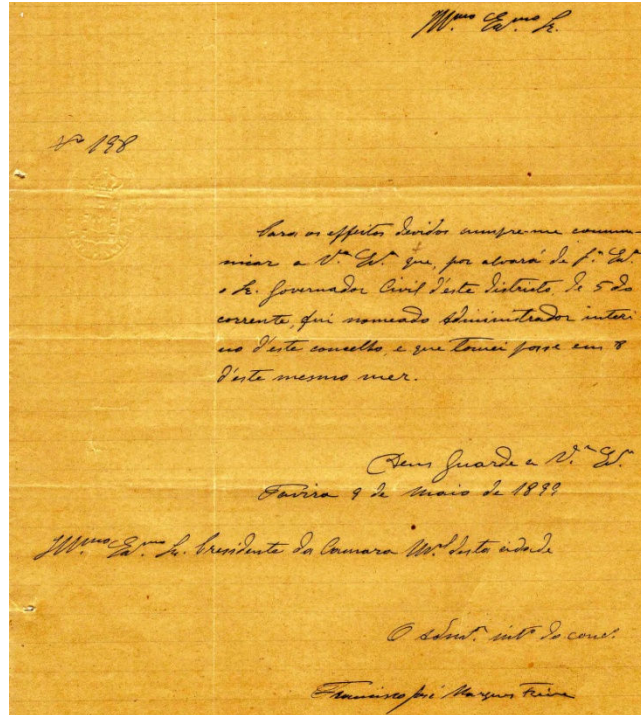 Ill.mo Ex.mo Sr.
Nº 198
Para os effeitos devidos cumpre-me commu-
nicar a V.ª Ex.ª que, por alvará de S.ª Ex.ª
o Sr. Governador Civil d'este districto, de 5 do
corrente, fui nomeado Administrador interi
no d'este concelho, e que tomei posse em 8
d'este mesmo mez.
Deus Guarde a V.ª Ex.ª
Tavira 9 de Maio de 1899
Ill.mo Ex.mo Sr. Presidente da Camara M.al desta cidade
O Adm.or int.º do conc.º
Francisco José Marques